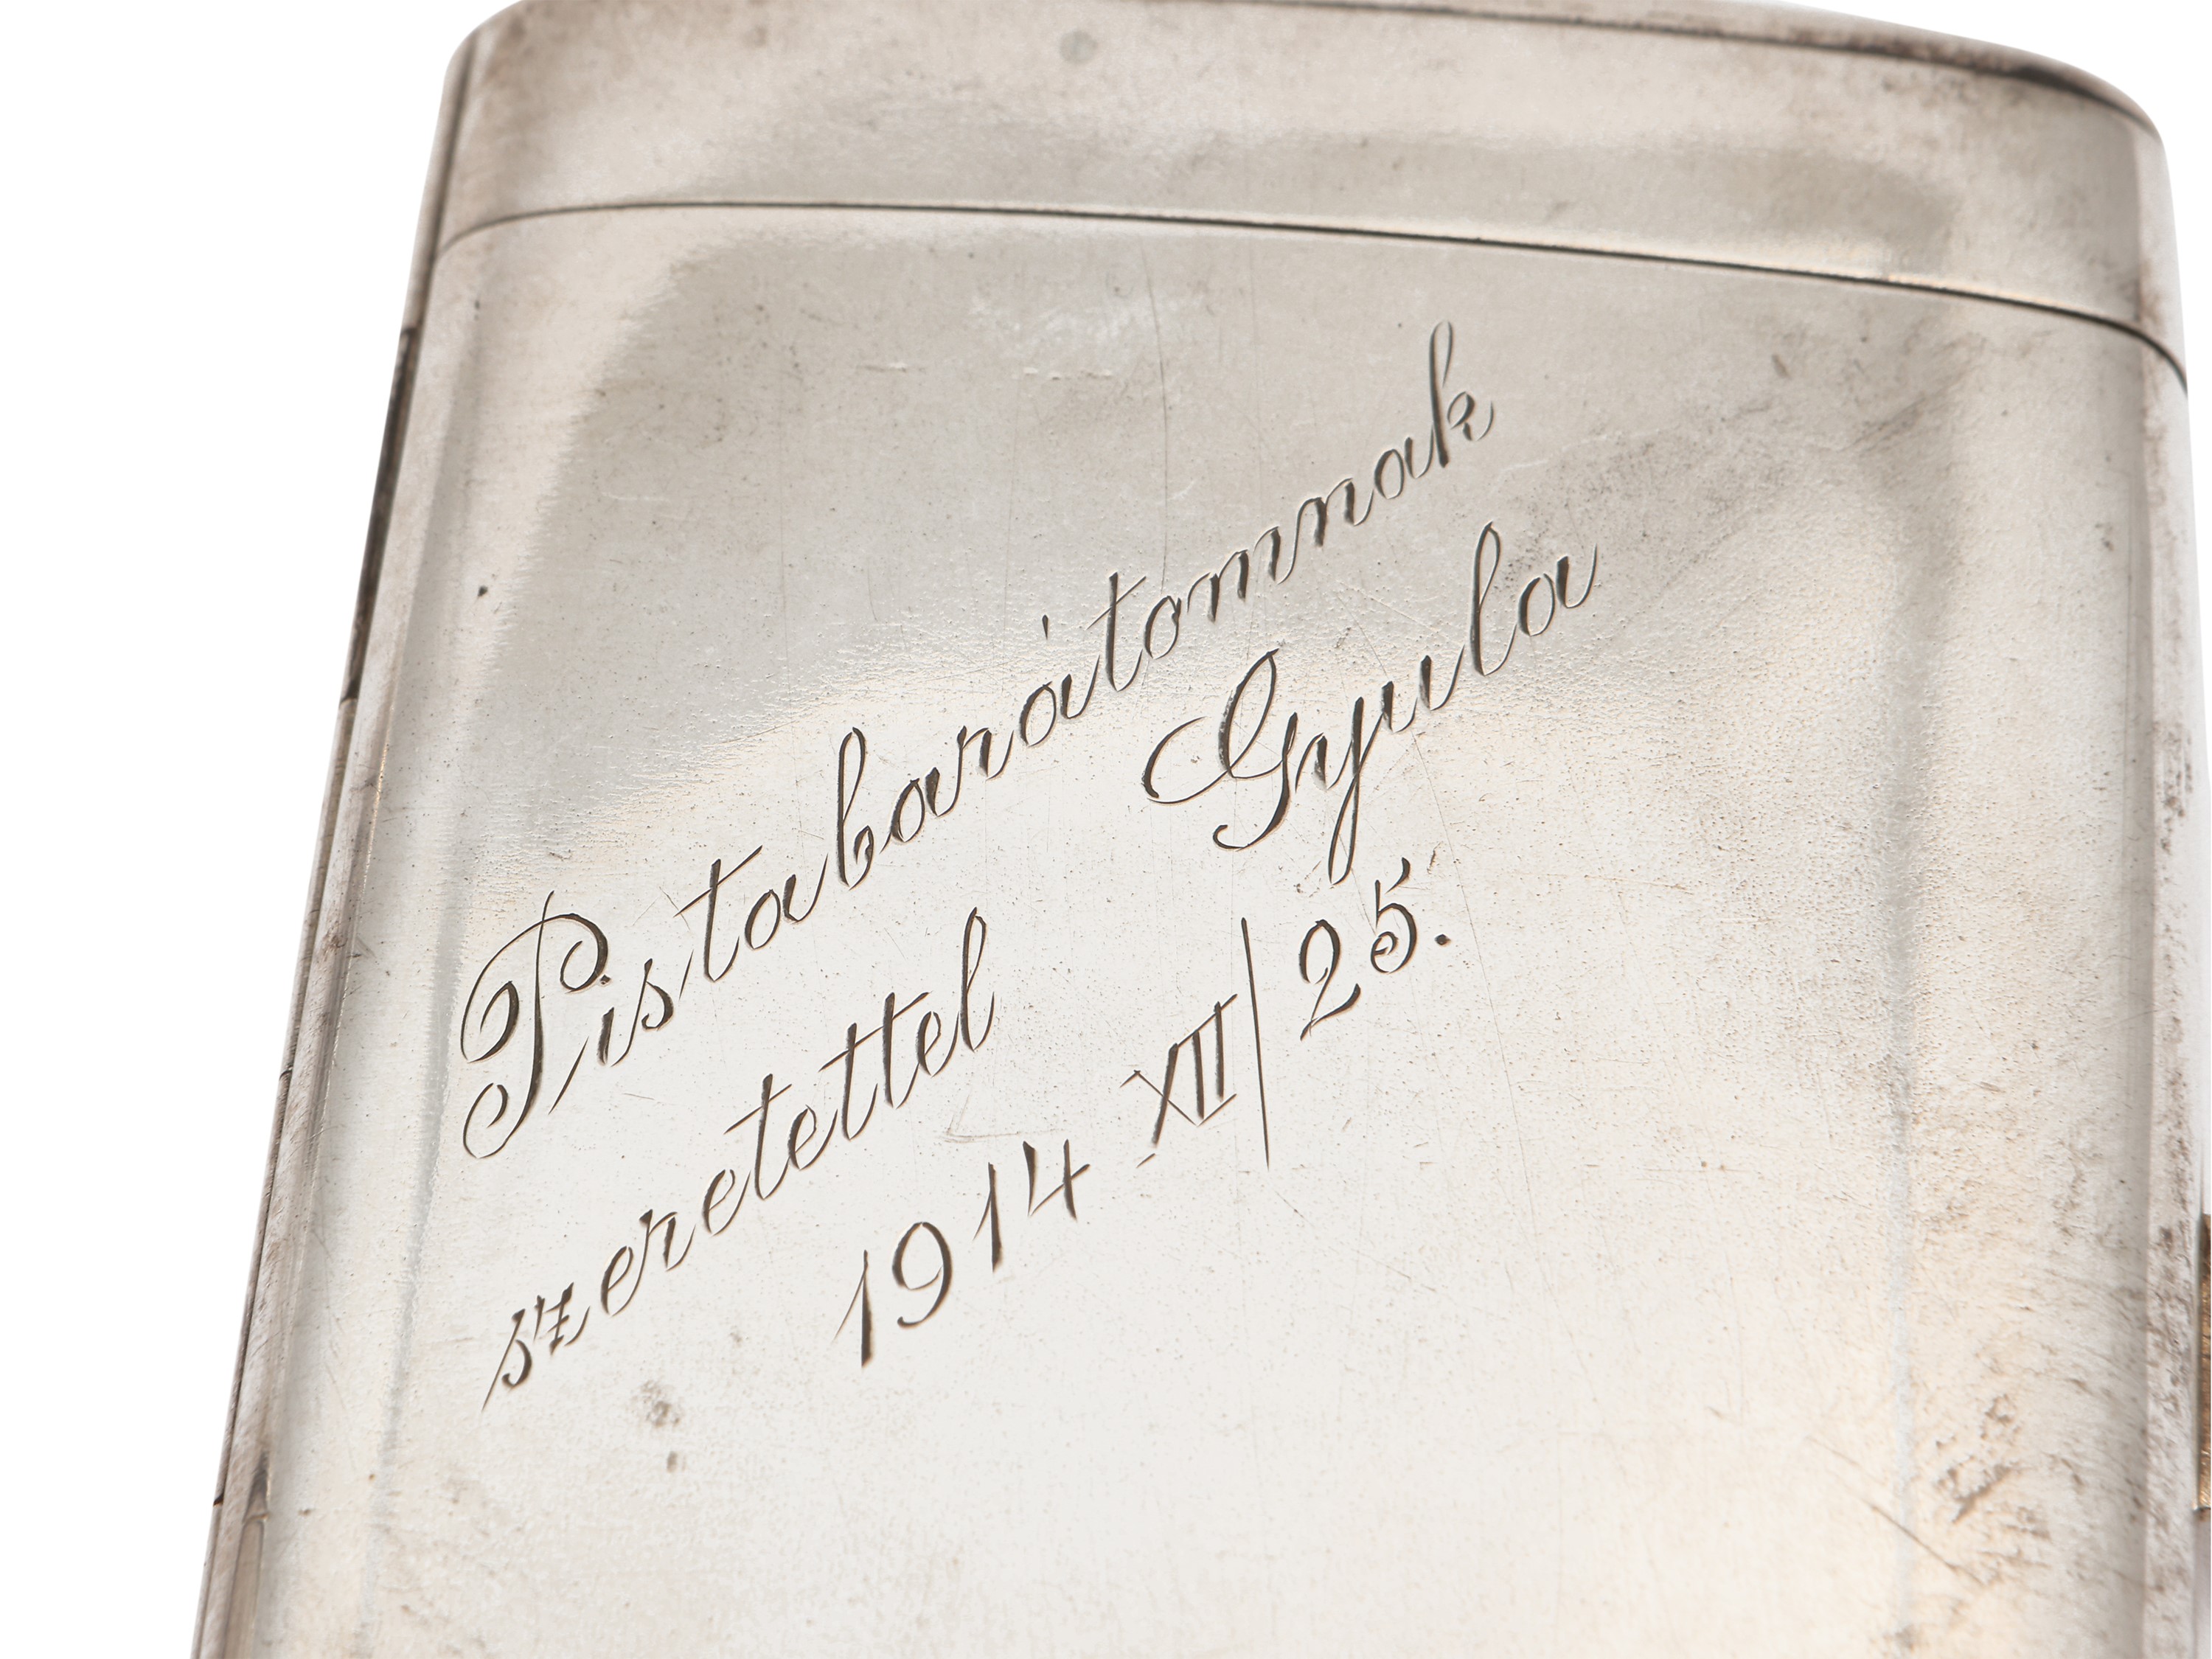 Pista barátomnak
szeretettel Gyula
1914 XII/25.